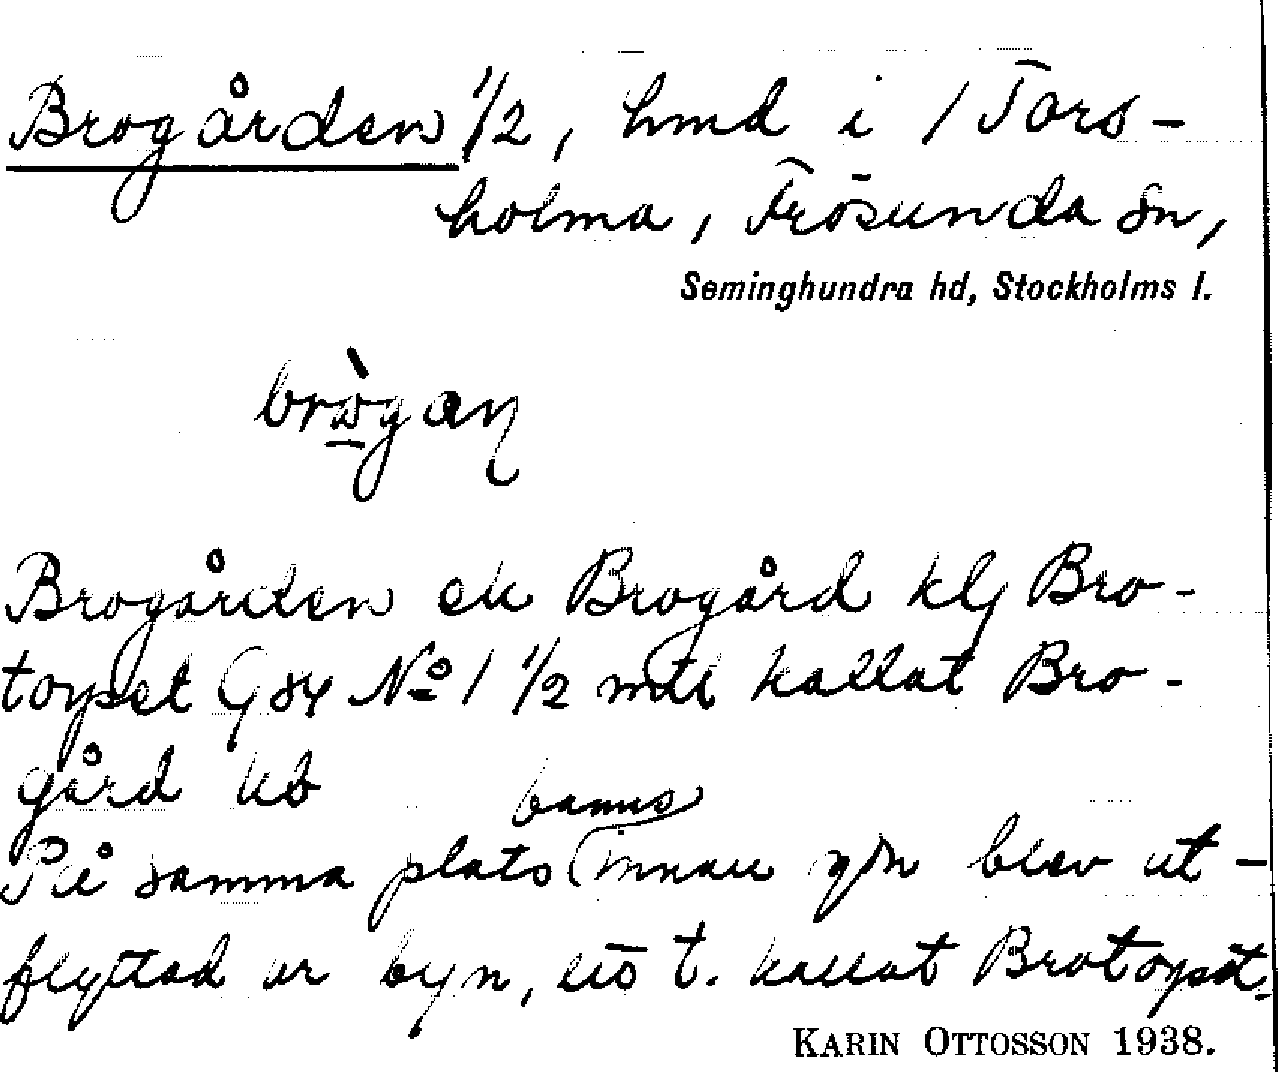 Brogården 1/2, hmd i / Tors-
holma, Frösunda sn,
Seminghundra hd, Stockholms l.
brògaɳ
Brogården ek Brogård klg Bro-
torpet G84 No 1 1/2 mtl kallat Bro-
gård kb
fanns
På samma plats innan gdn blev ut-
flyttad ur byn, ett t. kallat Brotorpet.
KARIN OTTOSSON 1938.